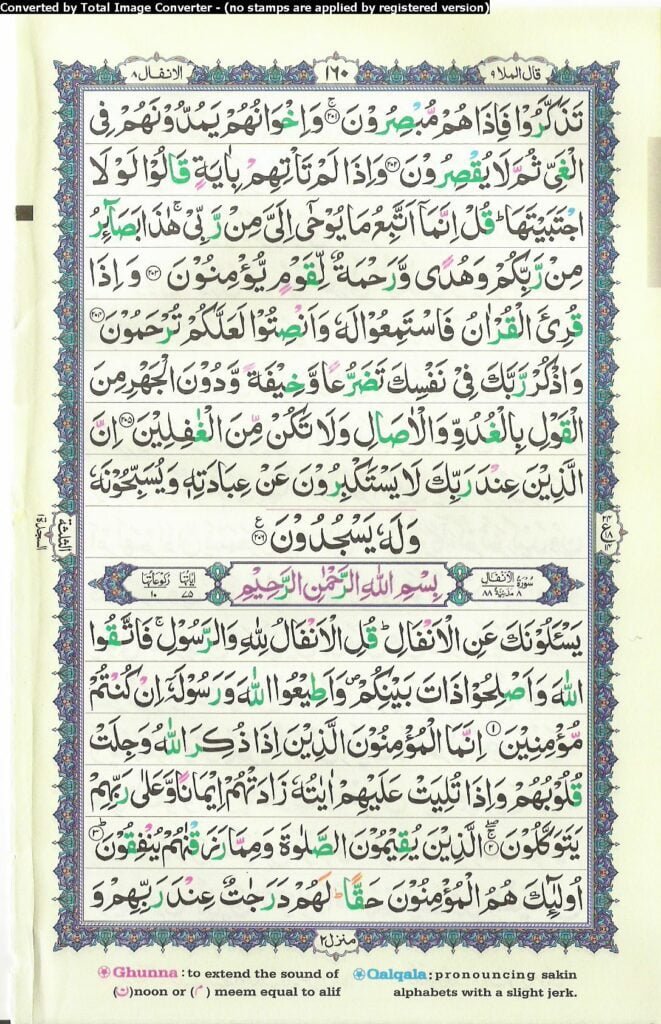 Converted by Total Image Converter - (no stamps are applied by registered version)
قال الملا ٩
١٦٠
الانفال ٨
تَذَكَّرُوْا فَاِذَا هُمْ مُّبْصِرُوْنَ ۚ﴿٢٠١﴾ وَاِخْوَانُهُمْ يَمُدُّوْنَهُمْ فِى
الْغَىِّ ثُمَّ لَا يُقْصِرُوْنَ ﴿٢٠٢﴾ وَاِذَا لَمْ تَاْتِهِمْ بِاٰيَةٍ قَالُوْا لَوْ لَا
اجْتَبَيْتَهَا ؕ قُلْ اِنَّمَاۤ اَتَّبِعُ مَا يُوْحٰۤى اِلَىَّ مِنْ رَّبِّىْ ۚ هٰذَا بَصَآئِرُ
مِنْ رَّبِّكُمْ وَهُدًى وَّرَحْمَةٌ لِّقَوْمٍ يُّؤْمِنُوْنَ ﴿٢٠٣﴾ وَاِذَا
قُرِئَ الْقُرْاٰنُ فَاسْتَمِعُوْا لَهٗ وَاَنْصِتُوْا لَعَلَّكُمْ تُرْحَمُوْنَ ﴿٢٠٤﴾
وَاذْكُرْ رَّبَّكَ فِىْ نَفْسِكَ تَضَرُّعًا وَّخِيْفَةً وَّدُوْنَ الْجَهْرِ مِنَ
الْقَوْلِ بِالْغُدُوِّ وَالْاٰصَالِ وَلَا تَكُنْ مِّنَ الْغٰفِلِيْنَ ﴿٢٠٥﴾ اِنَّ
الَّذِيْنَ عِنْدَ رَبِّكَ لَا يَسْتَكْبِرُوْنَ عَنْ عِبَادَتِهٖ وَيُسَبِّحُوْنَهٗ
وَلَهٗ يَسْجُدُوْنَ ﴿٢٠٦﴾ ع
السجدة ١
سُوْرَةُ الْاَنْفَالِ ٨ مَدَنِيَّةٌ ٨٨
بِسْمِ اللّٰهِ الرَّحْمٰنِ الرَّحِيْمِ
اٰيَاتُهَا ٧٥ رُكُوْعَاتُهَا ١٠
يَسْـَٔلُوْنَكَ عَنِ الْاَنْفَالِ ؕ قُلِ الْاَنْفَالُ لِلّٰهِ وَالرَّسُوْلِ ۚ فَاتَّقُوا
اللّٰهَ وَاَصْلِحُوْا ذَاتَ بَيْنِكُمْ ۪ وَاَطِيْعُوا اللّٰهَ وَرَسُوْلَهٗۤ اِنْ كُنْتُمْ
مُّؤْمِنِيْنَ ﴿١﴾ اِنَّمَا الْمُؤْمِنُوْنَ الَّذِيْنَ اِذَا ذُكِرَ اللّٰهُ وَجِلَتْ
قُلُوْبُهُمْ وَاِذَا تُلِيَتْ عَلَيْهِمْ اٰيٰتُهٗ زَادَتْهُمْ اِيْمَانًا وَّعَلٰى رَبِّهِمْ
يَتَوَكَّلُوْنَ ۚۖ﴿٢﴾ الَّذِيْنَ يُقِيْمُوْنَ الصَّلٰوةَ وَمِمَّا رَزَقْنٰهُمْ يُنْفِقُوْنَ ؕ﴿٣﴾
اُولٰٓئِكَ هُمُ الْمُؤْمِنُوْنَ حَقًّا ؕ لَهُمْ دَرَجٰتٌ عِنْدَ رَبِّهِمْ وَ
منزل ٢
Ghunna : to extend the sound of
(ن) noon or (م) meem equal to alif
Qalqala : pronouncing sakin
alphabets with a slight jerk.